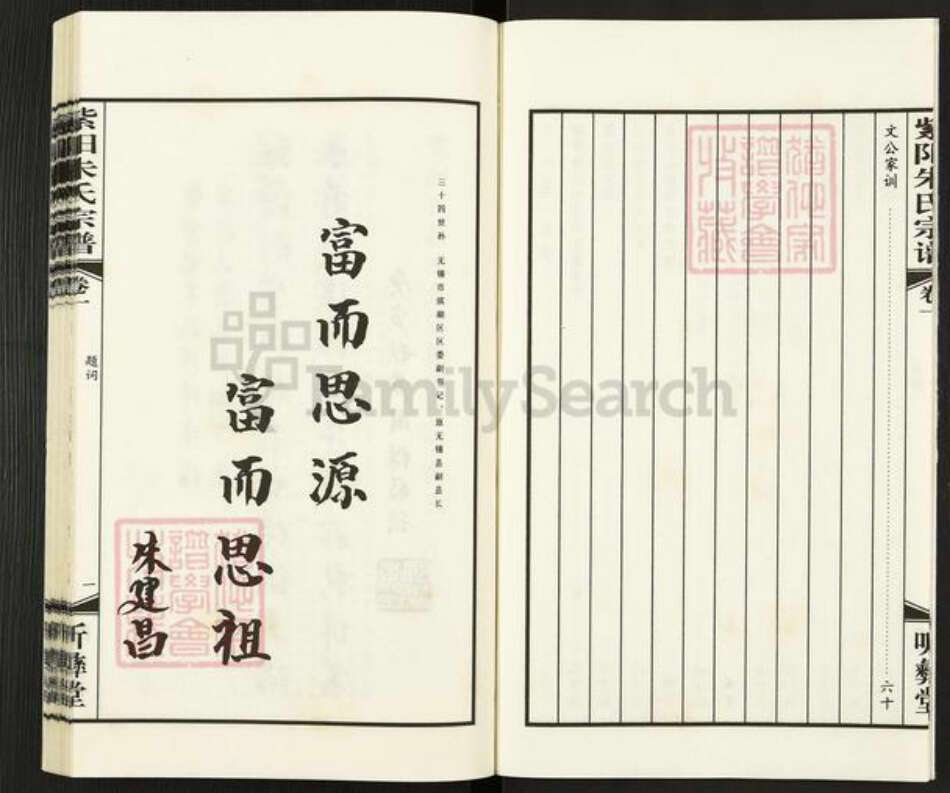 紫阳朱氏宗谱
卷一
文公家训
六十
三十四世孙 无锡市滨湖区区委副书记、原无锡县副县长
富而思源
富而思祖
朱建昌
紫阳朱氏宗谱
卷一
题词
一
FamilySearch